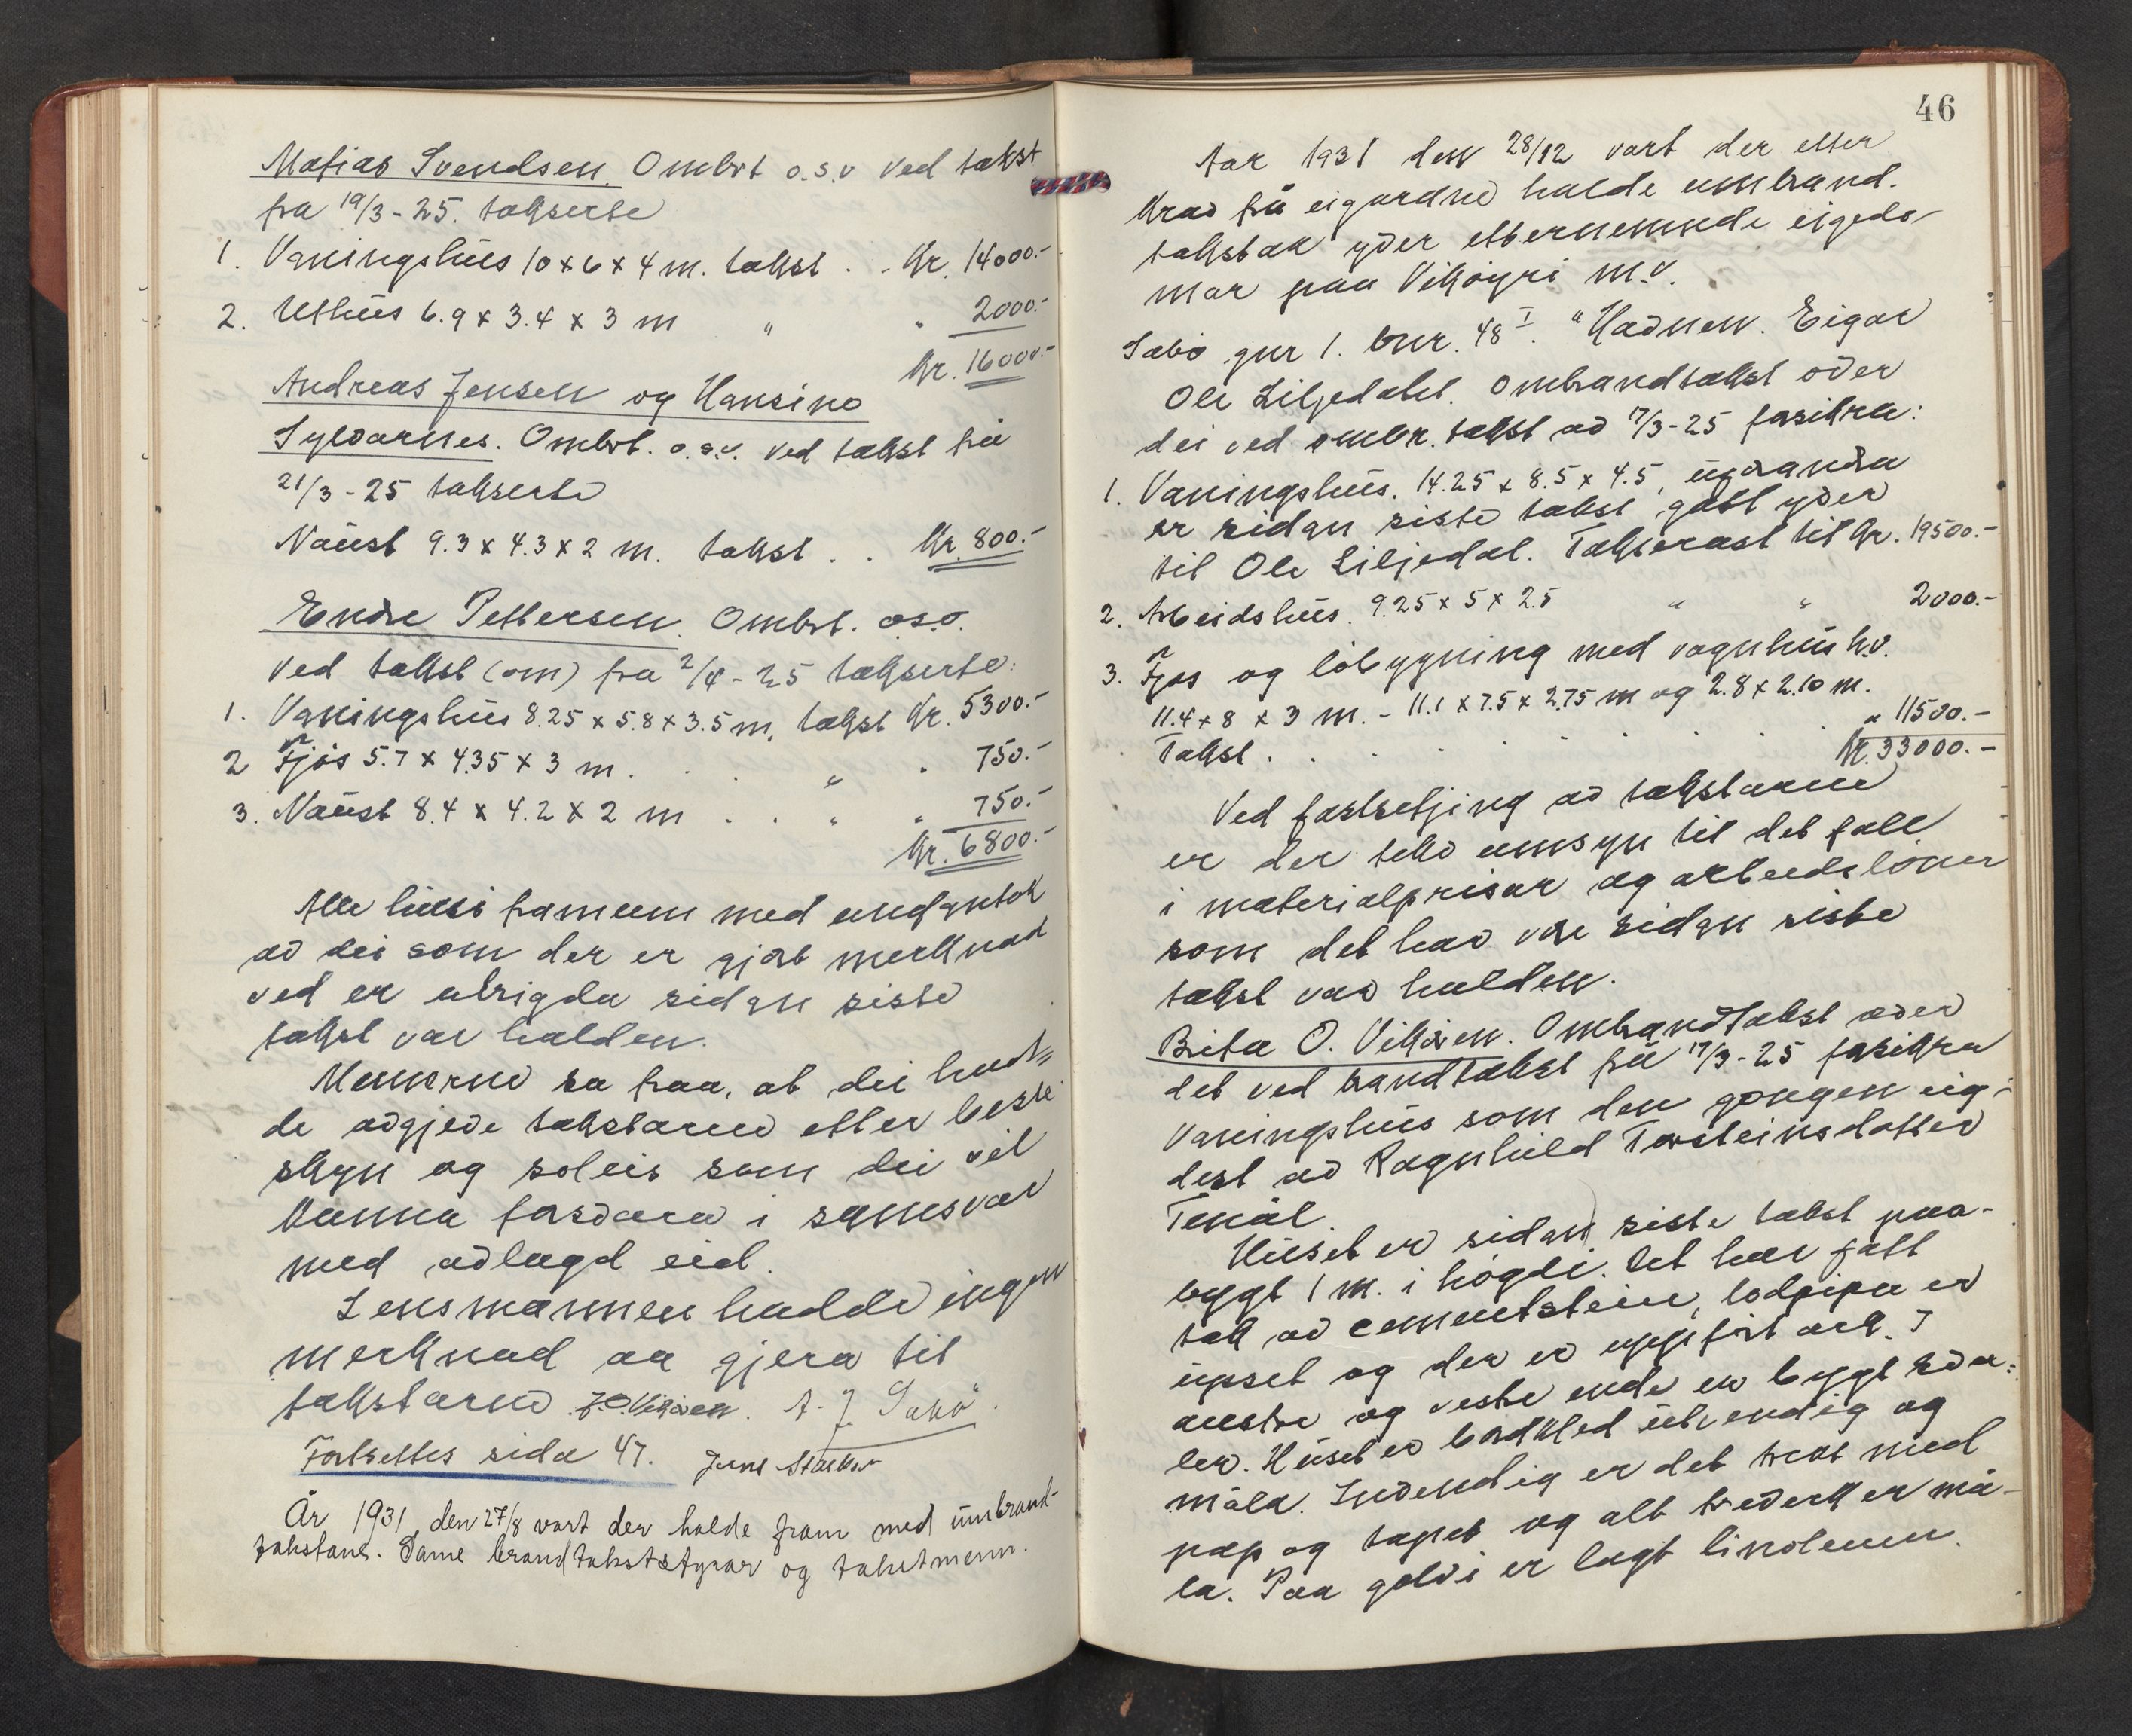 Matias Svendsen. Ombrt o.s.v ved takst
fra 19/3-25. takserte
1. Vaningshus 10 x 6 x 4 m. takst . . Kr. 14000.-
2. Uthus 6.9 x 3.4 x 3 m " " 2000.-
Kr. 16000.-
Andreas Jensen og Hansine
Sylvarnes. Ombrt. o.s.v. ved takst frå
21/3-25 takserte
Naust 9.3 x 4.3 x 2 m. takst . . Kr. 800.-
Endre Pettersen. Ombrt. osv.
ved takst (om) fra 2/4-25 takserte:
1. Vaningshus 8.25 x 5.8 x 3.5 m, takst Kr. 5300.-
2 Fjøs 5.7 x 4.35 x 3 m . . . " " 750.-
3. Naust 8.4 x 4.2 x 2 m . . " " 750.-
Kr. 6800.-
Alle husi framum med undantak
av dei som der er gjort merknad
ved er ubrigda sidan siste
takst var halden.
Mennerne sa fraa, at dei havd-
de avgjeve takstarne etter beste
skyn og soleis som dei vil
kunna forsvara i samsvar
med avlagd eid.
Lensmannen hadde ingen
merknad aa gjera til
takstarne. J.O. Vikøren. A. J. Sæbø.
Fortsettes sida 47. Jens
År 1931, den 27/8 vart der halde fram med umbrand-
takstane. Same brandtakststyrar og takstmenn.
46
Aar 1931 den 28/12 vart der etter
krav frå eigarane halde umbrand-
takstar yver etternemnde eigedo-
mar paa Vikøyri m.v.
Sæbø gnr 1. bnr. 48 I. "Hadnen. Eigar
Ole Liljedahl. Ombrandtakst over
dei ved ombr. takst av 17/3-25 forsikra:
1. Vaningshus. 14.25 x 8.5 x 4.5,
er sidan siste takst gått yver
til Ole Liljedal. Takserast til Kr. 19500.-
2. Arbeidshus. 9.25 x 5 x 2.5 " " 2000.-
3. Fjøs og løbygning med vognhus h.v.
11.4 x 8 x 3 m. - 11.1 x 7.5 x 2.75 m og 2.8 x 2.10 m.
Takst . . . . . . . . . " 11500.-
Kr. 33000.-
Ved fastsetjing av takstarne
er der teke umsyn til det fall
i materialprisar og arbeidsløner
som det hav vore sidan siste
takst var halden.
Brita O. Vikøren. Ombrandtakst over
det ved brandtakst frå 17/3-25 forsikra
Vaningshus som den gongen eig-
dest av Ragnhild Torsteinsdotter
Tenål.
Huset er sidan siste takst paa-
bygt 1 m. i høgdi. Det har fått
tak av cementstein, lodpipa er
i austre og vestre ende er bygt sva-
ler. Huset er bordkled utvendig og
måla. Invendig er det trekt med
pap og tapet og alt treverk er må-
la. Paa golvi er lagt linoleum.